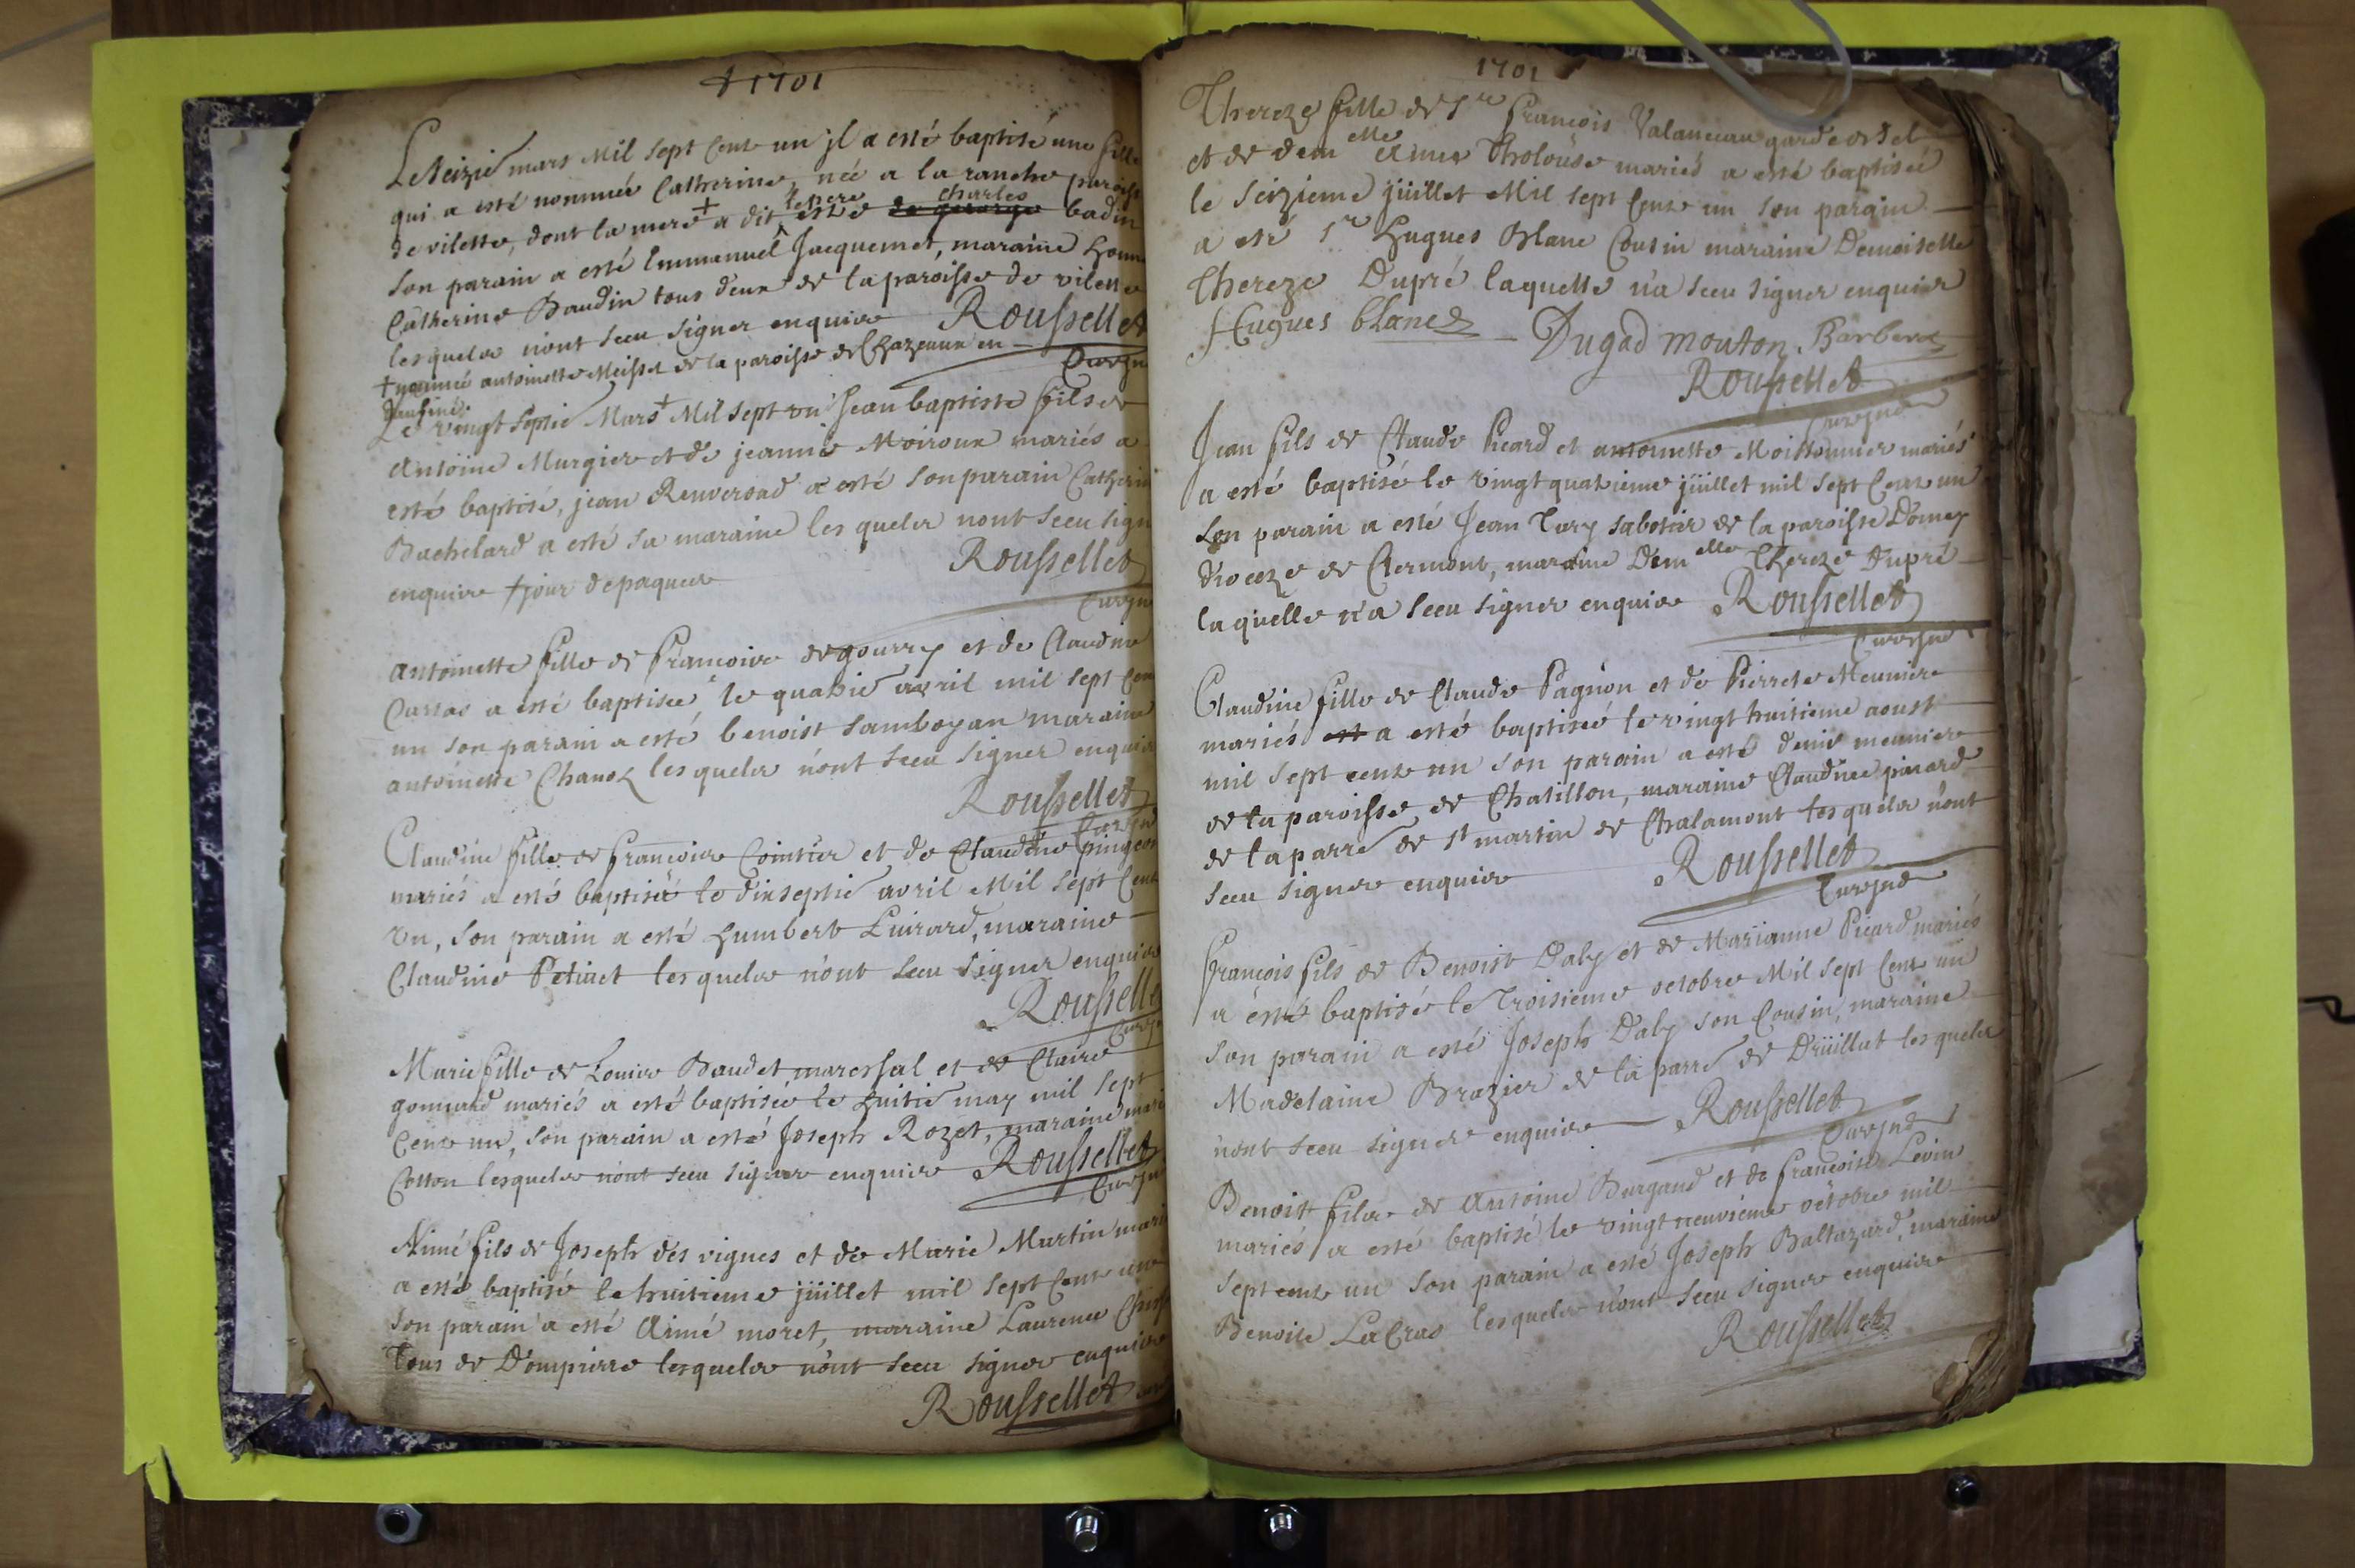 1701
Le seizie mars mil sept cens un jl a esté baptisé une fille
qui a esté nommée Catherine, née a la ranche paroisse
de vilette, dont la mere + a dit le pere estre de george Charles badin
son parain a esté Emmanuel Jacquemet, maraine honne
Catherine Baudin tous deux de la paroisse de vilette
lesquels n'ont sceu signer enquis Roussellet
+ nommée antoinette Meissel de la paroisse de Chazeaux en Curé jné
daufiné.
Le vingt septie Mars + Mil sept un Jean baptiste fils de
Antoine Murgier et de jeanne Moiroux mariés a
esté baptisé, jean Renversad a esté son parain Catherine
Bachelard a esté sa maraine lesquels nont sceu sign
enquis + jour de paques Roussellet
Curé jné
Antoinette fille de Francois degourry et de Claudine
Curtas a esté baptisée le quatrie avril mil sept cen
un son parain a esté benoist Samboyan maraine
antoinette Chanel lesquels n'ont sceu signer enquis
Roussellet
Curé jné
Claudine fille de Francois Cointier et de Claudine pingeon
mariés a esté baptisée le dixseptie avril Mil sept Cens
Un, son parain a esté humbert Luirard, maraine
Claudine Petiuet lesquels n'ont sceu signer enquis
Roussellet
Curé jné
Marie fille de Louis Baudet, mareschal et de Claire
gonnard mariés a esté baptisée le huitie may mil sept
Cens un, son parain a esté Joseph Rozet, maraine marie
Cotton lesquels n'ont sceu signer enquis Roussellet
Curé jné
Aimé fils de Joseph des vignes et de Marie Martin mariés
a esté baptisé le huitieme jüillet mil sept Cens un
son parain a esté Aimé moret, maraine Laurence
Tous de Dompierre lesquels n'ont sceu signer enquis
Roussellet curé
1701
Thereze fille de Sr François Valanceau garde de sel
et de demelle Anne Tholouse mariés a esté baptisée
le seizieme jüillet Mil sept Cens un son parain
a esté Sr Hugues Blanc Cousin maraine Demoiselle
Thereze Dupré laquelle n'a sceu signer enquis
Hugues blanc Dugad mouton Barberet
Roussellet
Curé jné
Jean fils de Claude Picard et antoinette Moissonnier mariés
a esté baptisé le vingt quatrieme jüillet mil sept Cens un
son parain a esté Jean Tary sabotier de la paroisse D'omex
dioceze de Clermont, maraine Demelle Thereze Dupré
laquelle n'a sceu signer enquis Roussellet
Curé jné
Claudine fille de Claude Pagnon et de Pierrete Meuniere
mariés est a esté baptisée le vingt huitieme aoust
mil sept cens un son parain a esté denis meuniere
de la paroisse de Chatillon, maraine Claudine pinard
de la parre de St martin de Chalamont lesquels n'ont
sceu signer enquis Roussellet
Curé jné
François fils de Benoist Daly et de Marianne Picard mariés
a esté baptisé le Troisieme octobre Mil sept Cens un
son parain a esté Joseph Daly son Cousin, maraine
Madelaine Brazier de la parre de Drüillat lesquels
n'ont sceu signer enquis Roussellet
Curé jné
Benoist fils de Antoine Burgaud et de Françoise Levin
mariés a esté baptisé le vingt neuvieme octobre mil
sept cens un son parain a esté Joseph Baltazard, maraine
Benoite LaCras lesquels n'ont sceu signer enquis
Roussellet